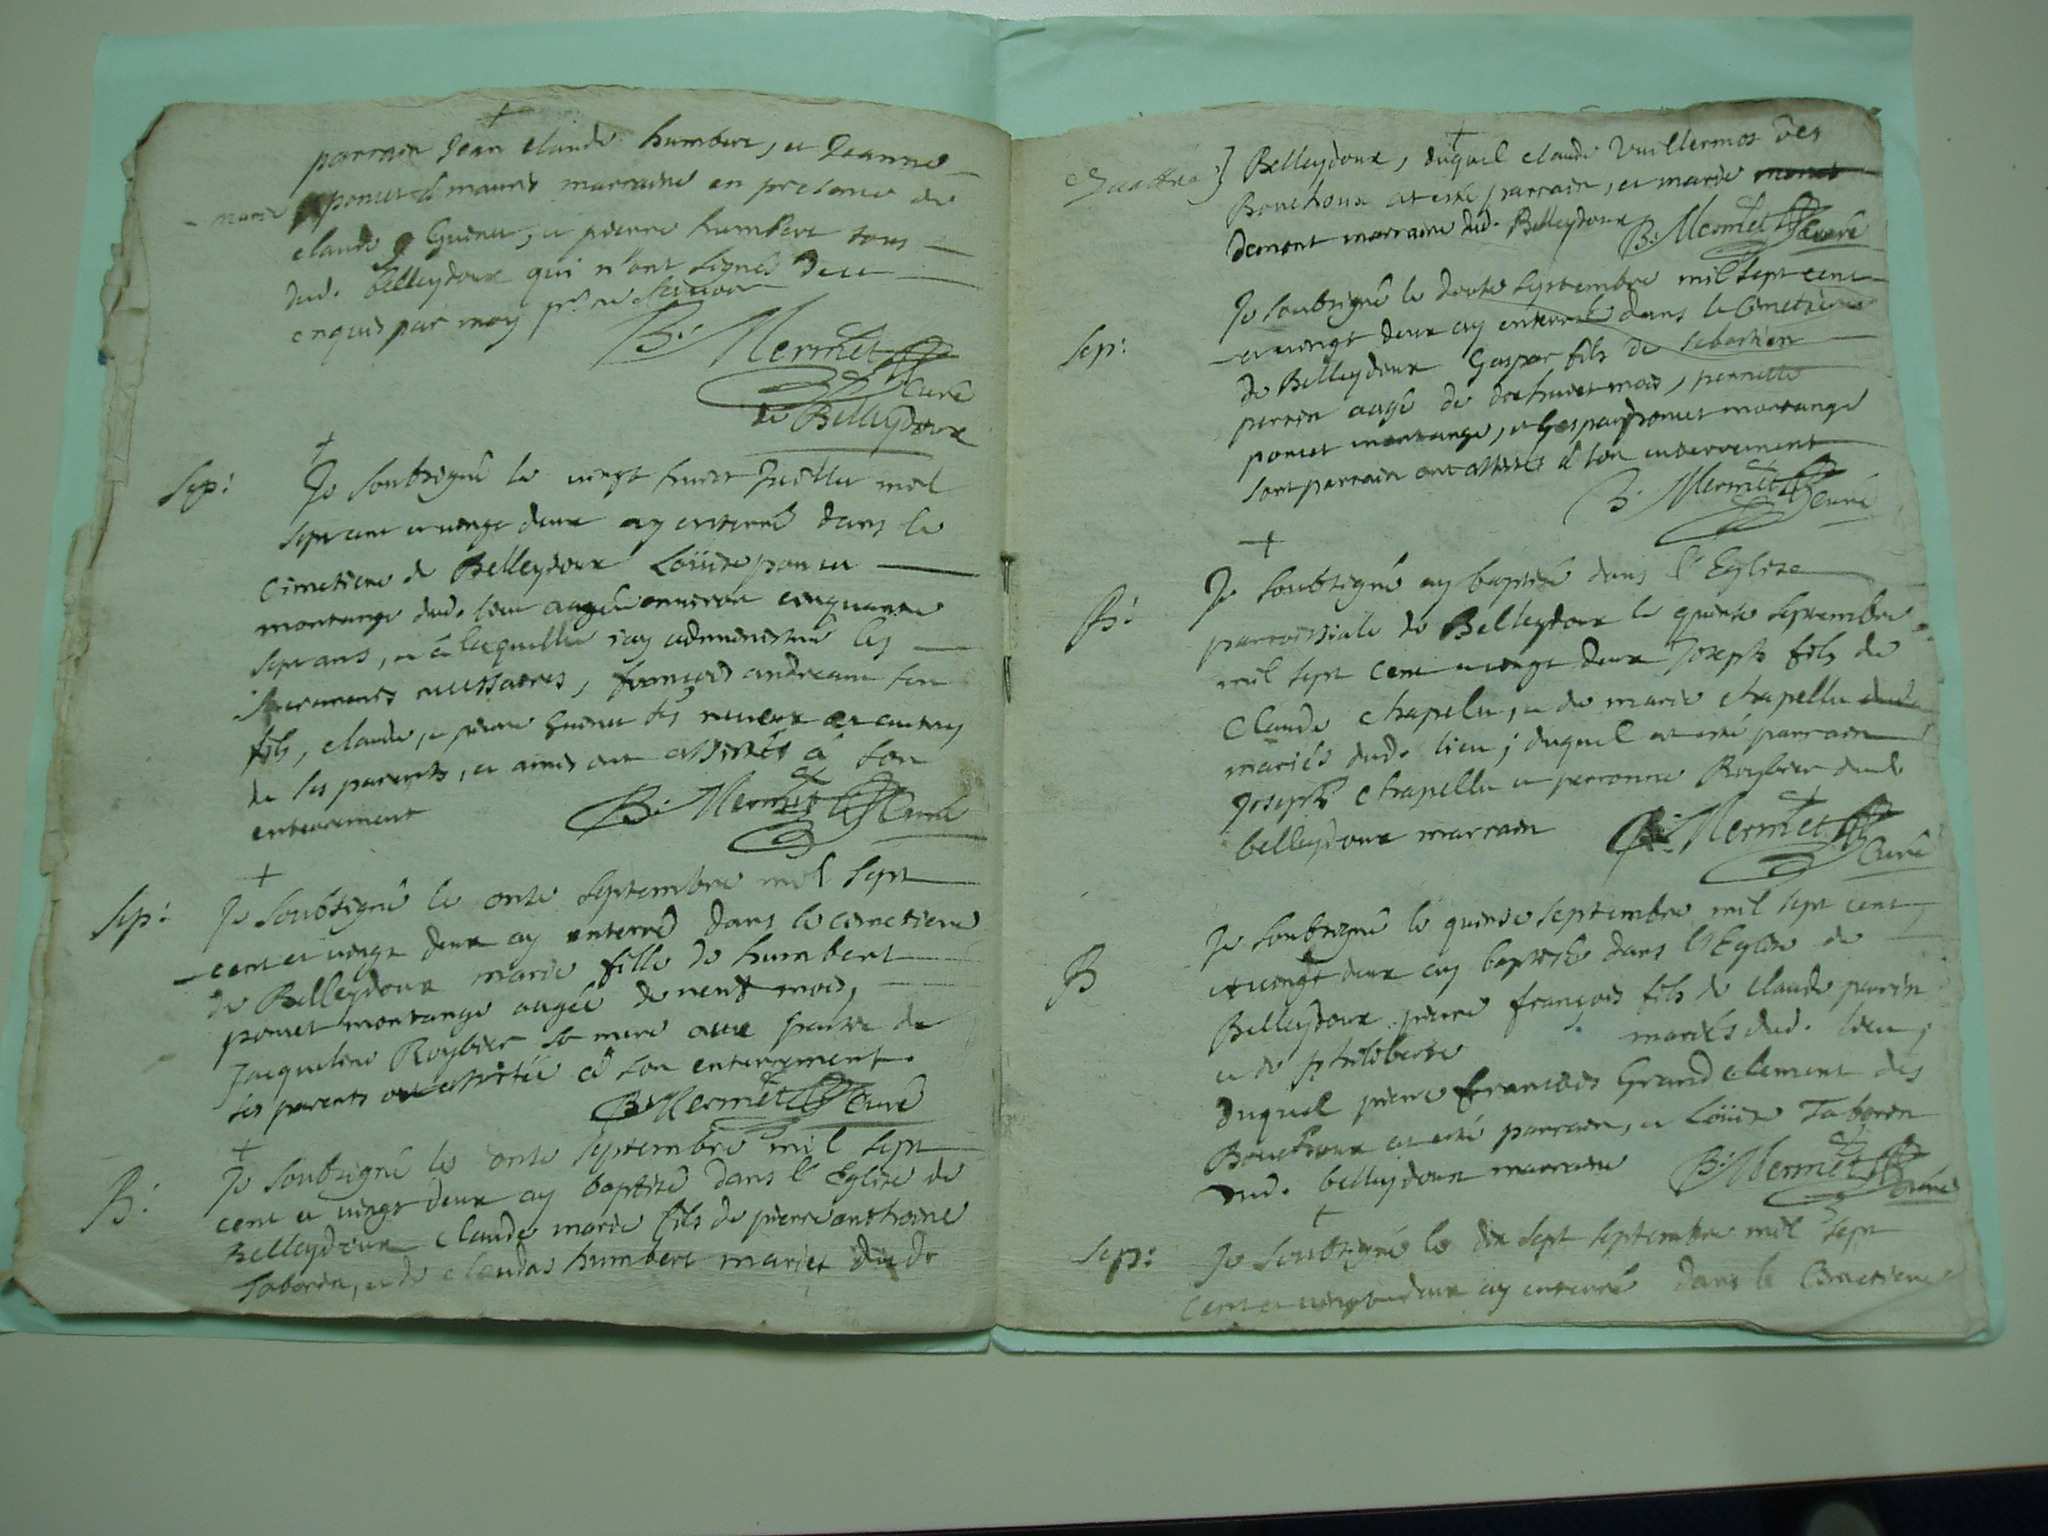 parrain Jean claude humbert, et Jeanne
marie ponet mauris marraine en presence de
claude Guenet, et pierre humbert tous
dud. belleydoux qui n'ont signés de ce
enquis par moy
B: Mermet Curé
de Belleydoux
Sep: Je soubsigné le vingt huict Juillet mil
sept cent et vingt deux ay enterré dans le
Cimetiere de Belleydoux Loüise poncet
montange dud. lieu aagée environ cinquante
sept ans, et à laquelle j'ay administré les
sacrements necessaires, françois andreane son
fils, claude, et pierre Guenet ses neveux et autres
de ses parents, et amis ont assistés à son
enterrement B: Mermet Curé
Sep: Je soubsigné le onze septembre mil sept
cent et vingt deux ay enterré dans le cimetiere
de Belleydoux marie fille de humbert
poncet montange aagée de neuf mois,
Jacqueline Roybier sa mere avec partie de
ses parents ont assistée à son enterrement.
B: Mermet Curé
B: Je soubsigné le onze septembre mil sept
cent et vingt deux ay baptisé dans l'Eglise de
Belleydoux claude marie fils de pierre anthoine
Taborin, et de claudas humbert mariés dud.
Belleydoux, duquel claude Vuillermoz des
Bouchoux at esté parrain, et marie monet
demont marraine dud. Belleydoux B: Mermet Curé
Sep: Je soubsigné le douze septembre mil sept cent
et vingt deux ay enterré dans le Cimetiere
de Belleydoux Gaspar fils de sebastien
perrin aagé de dixhuict mois, pernette
poncet montange, et Gaspar poncet montange
son parrain ont assistés à son enterrement
B: Mermet Curé
B: Je soubsigné ay baptisé dans l'Eglise
parroissiale de Belleydoux le quinze septembre
mil sept cent et vingt deux Joseph fils de
Claude chapelu, et de marie chapellu
mariés dud. lieu; duquel at esté parrain
Joseph chapellu et perronne Roybier dud.
belleydoux marrain B: Mermet Curé
B Je soubsigné le quinze septembre mil sept cent
et vingt deux ay baptisé dans l'Eglise de
Belleydoux pierre françois fils de claude perrin
et de philiberte mariés dud. lieu,
duquel pierre francois Grandclement des
Bouchoux at esté parrain, et Loüise Taborin
dud. belleydoux marraine B: Mermet Curé
Sep: Je soubsigné le dix sept septembre mil sept
cent et vingt deux ay enterré dans le Cimetiere